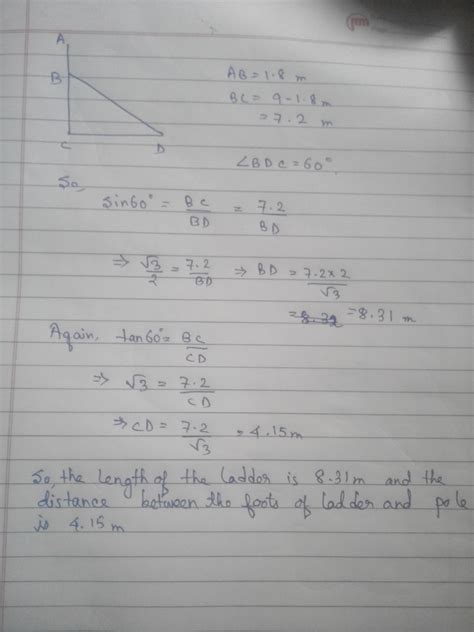 A
B
C
D
AB = 1.8 m
BC = 9-1.8m
= 7.2 m
∠BDC = 60°
So,
sin60° = BC/BD = 7.2/BD
⇒ √3/2 = 7.2/BD ⇒ BD = 7.2×2/√3
= 8.32 = 8.31 m
Again, tan60° = BC/CD
⇒ √3 = 7.2/CD
⇒ CD = 7.2/√3 = 4.15m
So, the length of the ladder is 8.31m and the
distance between the foots of ladder and pole
is 4.15 m